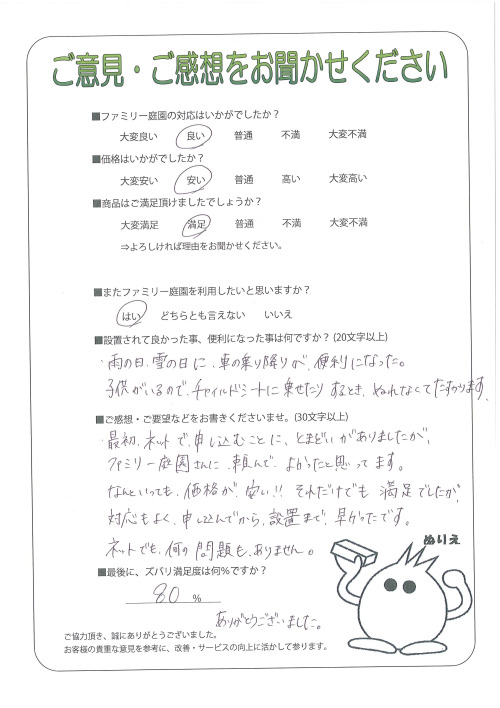 ご意見・ご感想をお聞かせください
■ファミリー庭園の対応はいかがでしたか?
大変良い 良い 普通 不満 大変不満
■価格はいかがでしたか?
大変安い 安い 普通 高い 大変高い
■商品はご満足頂けましたでしょうか?
大変満足 満足 普通 不満 大変不満
⇒よろしければ理由をお聞かせください。
■またファミリー庭園を利用したいと思いますか?
はい どちらとも言えない いいえ
■設置されて良かった事、便利になった事は何ですか?(20文字以上)
・雨の日、雪の日に、車の乗り降りが、便利になった。
子供がいるので、チャイルドシートに乗せたりするとき、ぬれなくてたすかります。
■ご感想・ご要望などをお書きくださいませ。(30文字以上)
・最初、ネットで、申し込むことに、とまどいがありましたが、
ファミリー庭園さんに、頼んで、よかったと思ってます。
なんといっても、価格が、安い!! それだけでも満足でしたが、
対応もよく、申し込んでから、設置まで、早かったです。
ネットでも、何の問題も、ありません。
ぬりえ
■最後に、ズバリ満足度は何%ですか?
80 %
ありがとうございました。
ご協力頂き、誠にありがとうございました。
お客様の貴重な意見を参考に、改善・サービスの向上に活かして参ります。